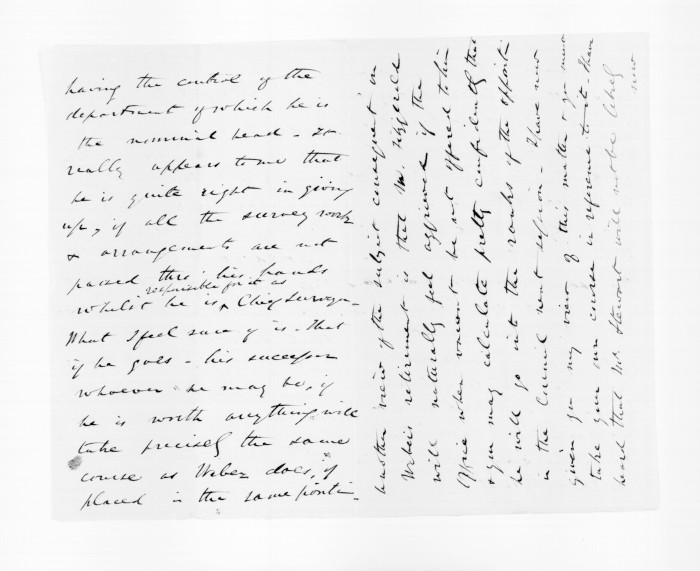 having the control of the
department of which he is
the nominal head - It
really appears to me that
he is quite right in giving
up, if all the survey work
& arrangements are not
passed thro' his hands
responsible for it as
whilst he is ^ Chief Surveyor -
What I feel sure of is - that
if he goes - his successor
whoever he may be, if
he is worth anything will
take precisely the same
course as Weber does, if
placed in the same positi-
another view of the subject consequent on
Weber's retirement is that Mr. Fitzgerald
will naturally feel aggrieved if the
Office when vacant be not offered to him
& you may calculate pretty confidently that
he will go into the ranks of the oppositi-
in the Council next session - I have now
given you my view of this matter & you must
take your own course in reference to it - I have
heard that Mr Stewart will not be likely